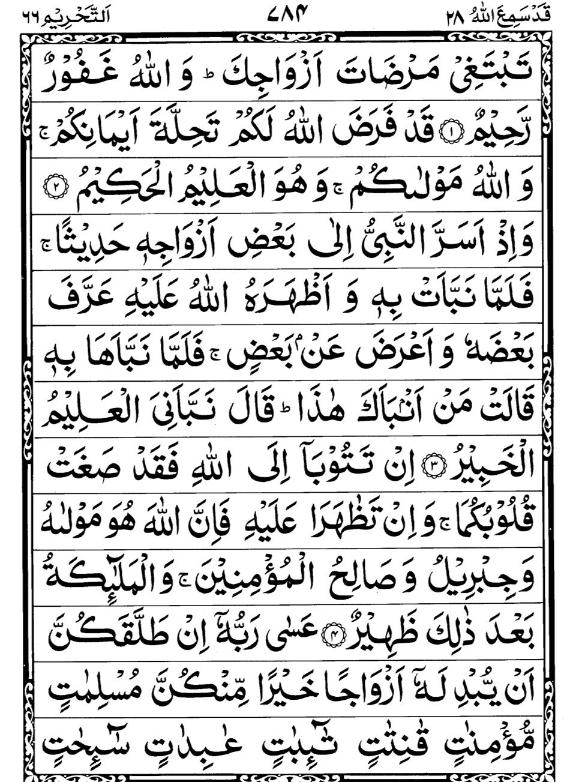 قَدۡسَمِعَ اللهُ ۲۸
۷۸۴
اَلتَّحۡرِيۡم ۶۶
تَبۡتَغِىۡ مَرۡضَاتَ اَزۡوَاجِكَ ؕ وَ اللّٰهُ غَفُوۡرٌ
رَّحِيۡمٌ ۝۱ قَدۡ فَرَضَ اللّٰهُ لَكُمۡ تَحِلَّةَ اَيۡمَانِكُمۡ ۚ
وَ اللّٰهُ مَوۡلٰٮكُمۡ ۚ وَ هُوَ الۡعَلِيۡمُ الۡحَكِيۡمُ ۝۲
وَاِذۡ اَسَرَّ النَّبِىُّ اِلٰى بَعۡضِ اَزۡوَاجِهٖ حَدِيۡثًا ۚ
فَلَمَّا نَبَّاَتۡ بِهٖ وَ اَظۡهَرَهُ اللّٰهُ عَلَيۡهِ عَرَّفَ
بَعۡضَهٗ وَ اَعۡرَضَ عَنۡۢ بَعۡضٍ ۚ فَلَمَّا نَبَّاَهَا بِهٖ
قَالَتۡ مَنۡ اَنۡۢبَاَكَ هٰذَا ؕ قَالَ نَبَّاَنِىَ الۡعَلِيۡمُ
الۡخَبِيۡرُ ۝۳ اِنۡ تَتُوۡبَاۤ اِلَى اللّٰهِ فَقَدۡ صَغَتۡ
قُلُوۡبُكُمَا ۚ وَ اِنۡ تَظٰهَرَا عَلَيۡهِ فَاِنَّ اللّٰهَ هُوَ مَوۡلٰٮهُ
وَ جِبۡرِيۡلُ وَ صَالِحُ الۡمُؤۡمِنِيۡنَ ۚ وَ الۡمَلٰٓئِكَةُ
بَعۡدَ ذٰلِكَ ظَهِيۡرٌ ۝۴ عَسٰى رَبُّهٗۤ اِنۡ طَلَّقَكُنَّ
اَنۡ يُّبۡدِلَهٗۤ اَزۡوَاجًا خَيۡرًا مِّنۡكُنَّ مُسۡلِمٰتٍ
مُّؤۡمِنٰتٍ قٰنِتٰتٍ تٰٓئِبٰتٍ عٰبِدٰتٍ سٰٓئِحٰتٍ